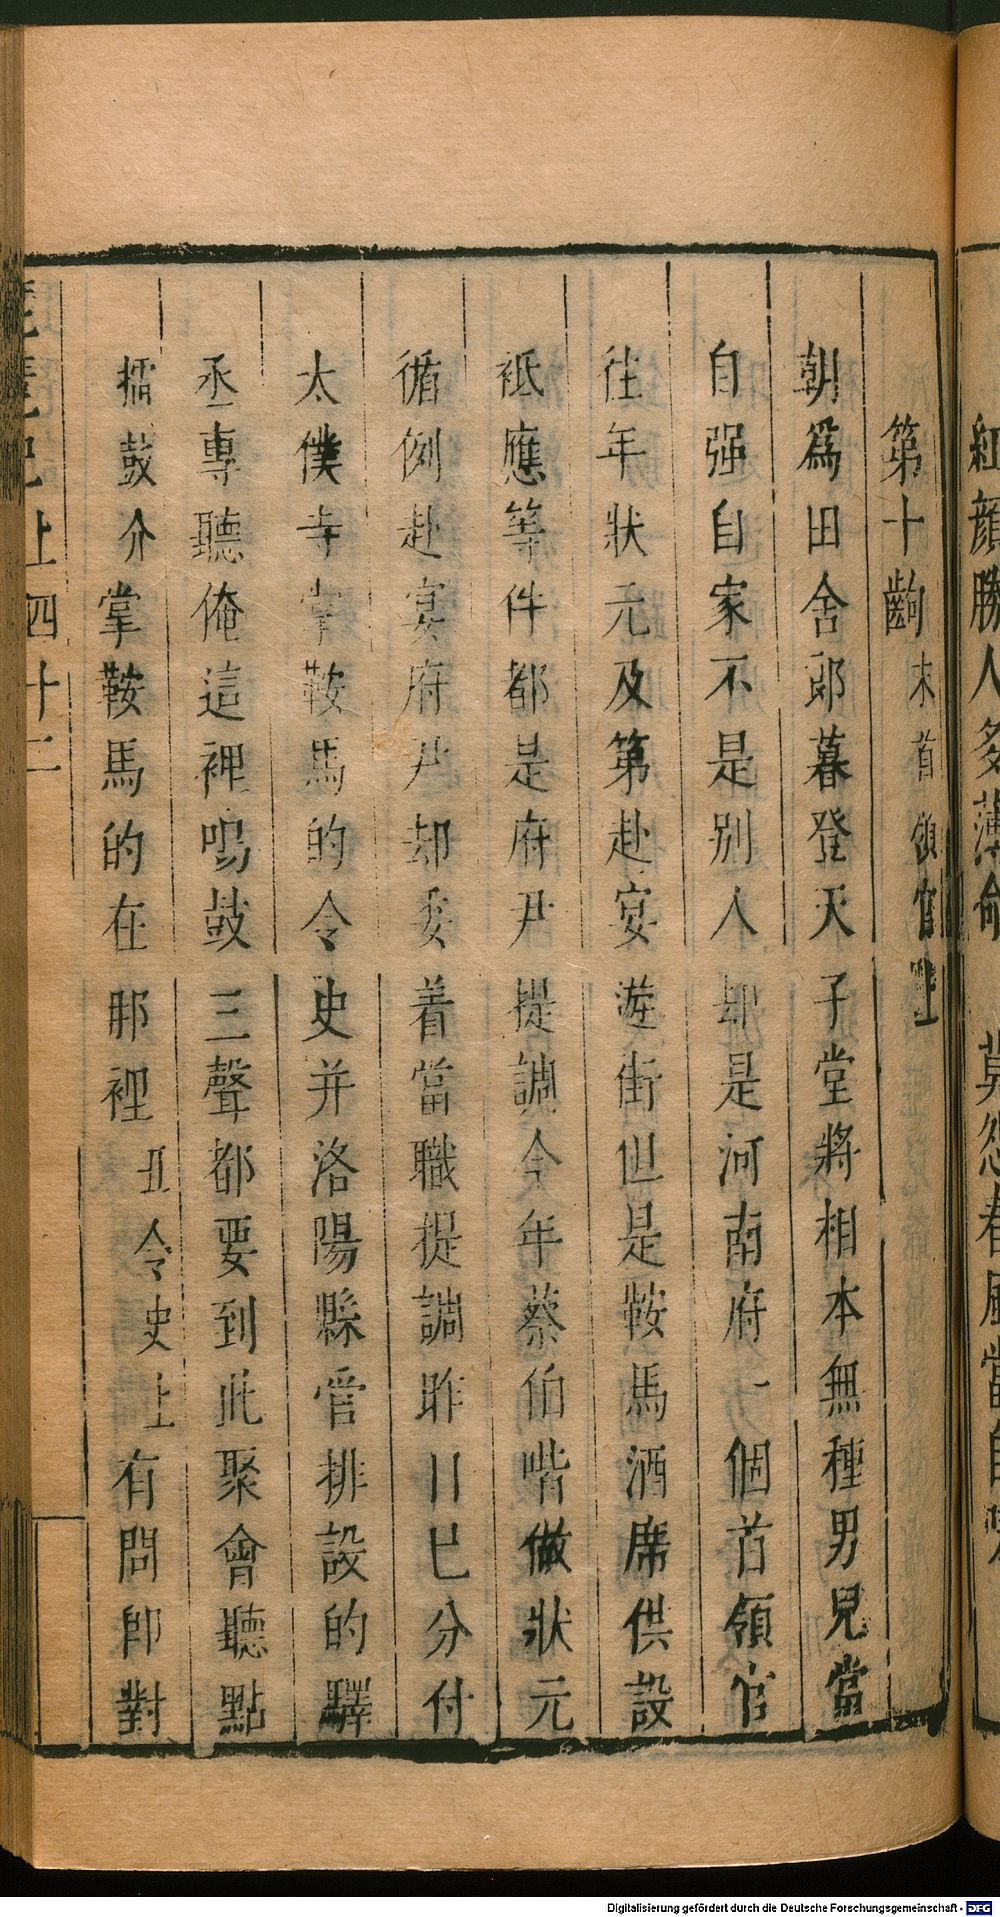 紅顔勝人多薄命　莫怨春風當自嗟
第十齣　末首領官上
朝爲田舍郎暮登天子堂將相本無種男兒當
自强自家不是别人却是河南府一個首領官
往年狀元及第赴宴遊街但是鞍馬酒席供設
祗應等件都是府尹提調今年蔡伯喈做狀元
循例赴宴府尹却委着當職提調昨日已分付
太僕寺掌鞍馬的令史并洛陽縣管排設的驛
丞專聽俺這裡鳴鼓三聲都要到此聚會聽點
擂鼓介掌鞍馬的在那裡丑令史上有問卽對
琵琶記上四十二
Digitalisierung gefördert durch die Deutsche Forschungsgemeinschaft - DFG